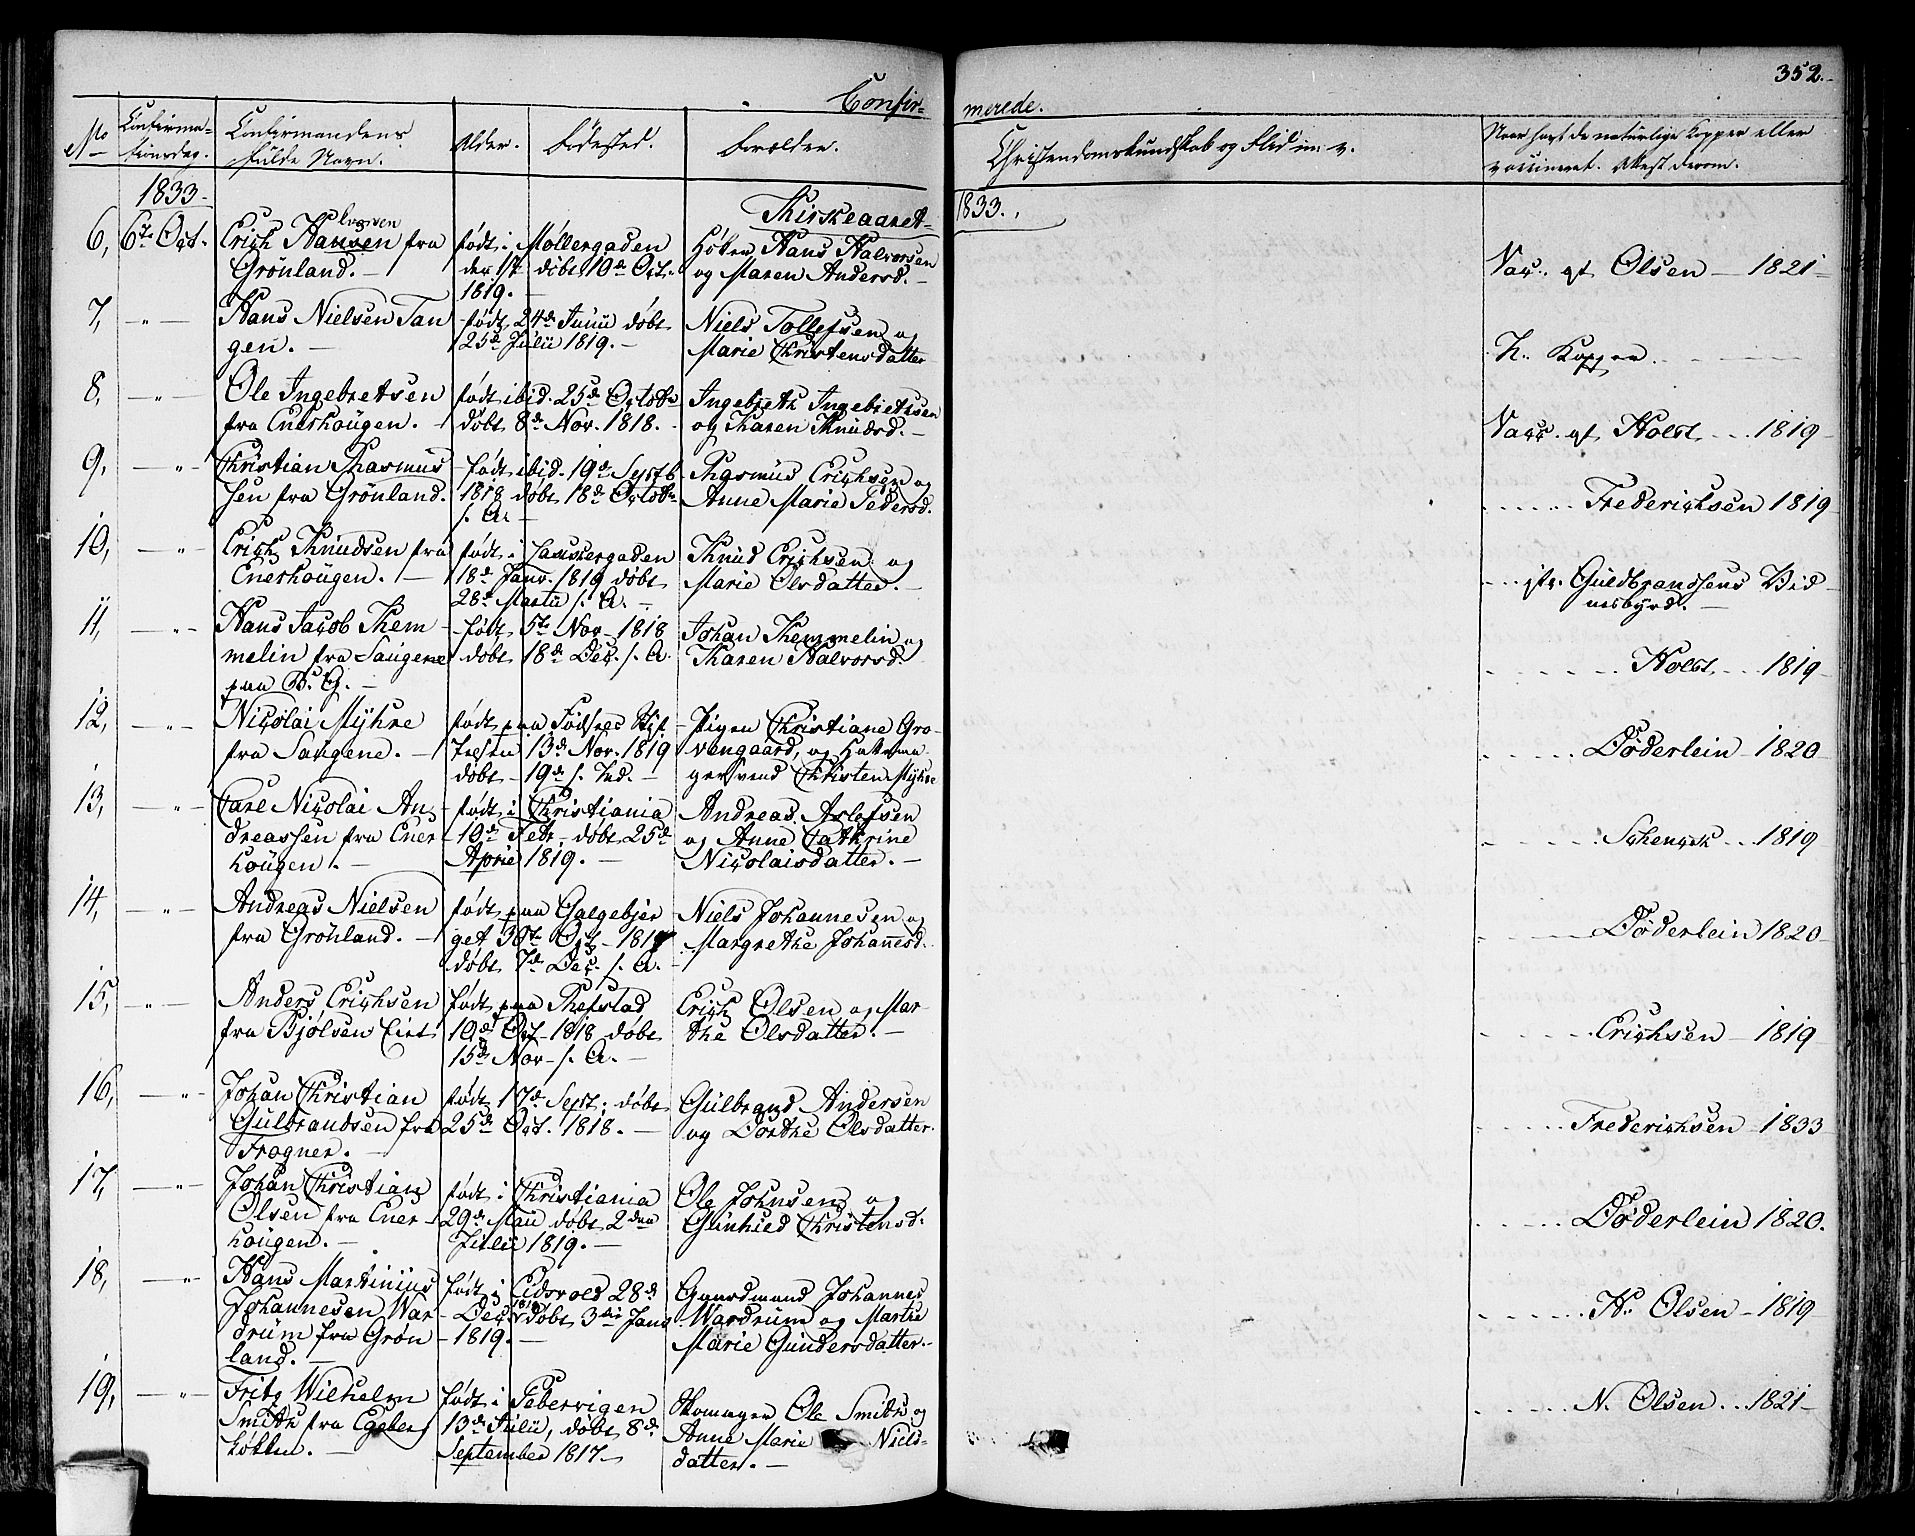 352.
Confir-
merede.
No
Confirma-
tionsdag.
Confirmandens
fulde Navn.
Alder.
Fødested.
Forældre.
Christendomskundskab og Flid m: v.
Naar havt de naturlige Kopper eller
vaccineret. Attest derom.
1833.
Kirkeaaret
1833.
6, 6te Oct.
Erich Hansen fra
Grönland. —
født i Møllergaden
den 1st døbt 10de Oct.
1819. —
Høker Hans Halvorsen
og Maren Andersd. —
Vacc. af Olsen — 1821
7, — " —
Hans Nielsen Tan
gen. —
født 24de Junii døbt
25de Julii 1819. —
Niels Tollefsen og
Marie Christensdatter
H. Kopper.
8, — " —
Ole Ingebretsen
fra Enerhougen. —
født ibid. 25de Octobr
døbt 8de Nov. 1818. —
Ingebreth Ingebretsen
og Karen Knudsd. —
Vacc. af Holst 1819
9, — " —
Christian Rasmus
sen fra Grönland.
født ibid. 19de Septb
1818 døbt 18de Octobr
s. A. —
Rasmus Erichsen og
Anne Marie Pedersd.
Frederichsen 1819
10, — " —
Erich Knudsen fra
Enerhougen. —
født i
18de Janv. 1819 døbt
28de Martii s. A. —
Knud Erichsen og
Marie Olsdatter. —
Guldbrandsens Vid
nesbyrd. —
11, — " —
Hans Jacob Them
melin fra Saugene
paa B. G. —
født 5te Nov. 1818
døbt 18de Dec. s. A.
Johan Themmelin og
Karen Halvorsd.
Holst 1819
12, — " —
Nicolai Myhre
fra Saugene. —
født paa Fødsels Stif
telsen 13de Nov. 1819
døbt 19de s. Md. —
Pigen Christiane Gro
vengaard, og Hatema
gersvend Christen Myhre
Døderlein 1820
13, — " —
Carl Nicolai An
dreassen fra Ener
hougen. —
født i Christiania
10de Febr. døbt 25de
April 1819. —
Andreas Aslefsen
og Anne Cathrine
Nicolaisdatter. —
Schenck 1819
14, — " —
Andreas Nielsen
fra Grönland. —
født paa Galgebjer
get 30te Oct. 1819
døbt 7de Dec. s. A. —
Niels Johannesen og
Margrethe Johannesd.
Døderlein 1820
15, — " —
Anders Erichsen
fra Bjølsen
født paa Refstad
10de Oct. 1818 døbt
15de Nov. s. A. —
Erich Olsen og Mar
the Olsdatter. —
Erichsen 1819
16, — " —
Johan Christian
Gulbrandsen fra
Frogner. —
født 17de Sept. døbt
25de Oct. 1818. —
Gulbrand Andersen
og Dorthe Olsdatter.
Frederichsen 1833
17, — " —
Johan Christian
Olsen fra Ener
hougen. —
født i Christiania
29de Maii døbt 2den
Julii 1819. —
Ole Johnsen og
Gunhild Christensd.
Døderlein 1820.
18, — " —
Hans Martinius
Johannesen War
drum fra Grön
land. —
født i Eidsvold 28de
Dec. 1818 døbt 3die Janv
1819. —
Gaardmand Johannes
Wardrum og Marthe
Marie Gundersdatter. —
N. Olsen 1819
19, — " —
Fritz Wilhelm
Smith fra Egeber
løkken. —
født i Pebervigen
13de Julii, døbt 8de
September 1817 —
Skomager Ole Smith og
Anne Marie Niels-
datter. —
N. Olsen 1821